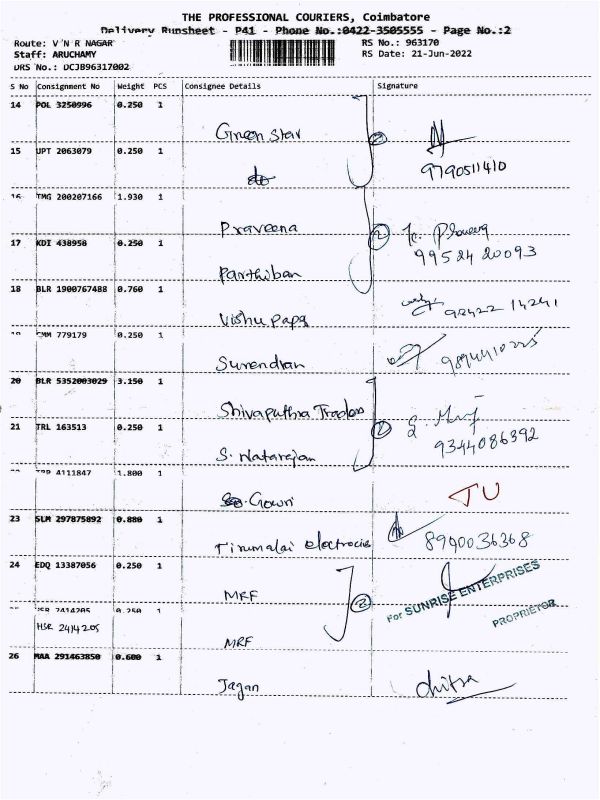 THE PROFESSIONAL COURIERS, Coimbatore
Delivery Runsheet - P41 - Phone No.:0422-3505555 - Page No.:2
Route: V N R NAGAR RS No.: 963170
Staff: ARUCHAMY RS Date: 21-Jun-2022
DRS No.: DCJB96317002
S No Consignment No Weight PCS Consignee Details Signature
14 POL 3250996 0.250 1
Green Star 2
15 UPT 2063079 0.250 1 9790511410
16 TMG 200207166 1.930 1
Praveena 2
17 KDI 438958 0.250 1 99524 20093
Parthiban
18 BLR 1900767488 0.760 1 98422 14241
Vishu Papq
19 CMM 779179 0.250 1
Surendran 9894410225
20 BLR 5352003029 3.150 1
Shivaputhra Traders
21 TRL 163513 0.250 1 2
S. Natarajan 9344086392
4111847 1.800 1
Gowri TU
23 SLM 297875892 0.880 1
Tirumalai electrocis 8940036368
24 EDQ 13387056 0.250 1
MRF 2 For SUNRISE ENTERPRISES
HSR 2414205 0.250 1 PROPRIETOR
HSR 2414205
MRF
26 MAA 291463850 0.600 1
Jagan chitra